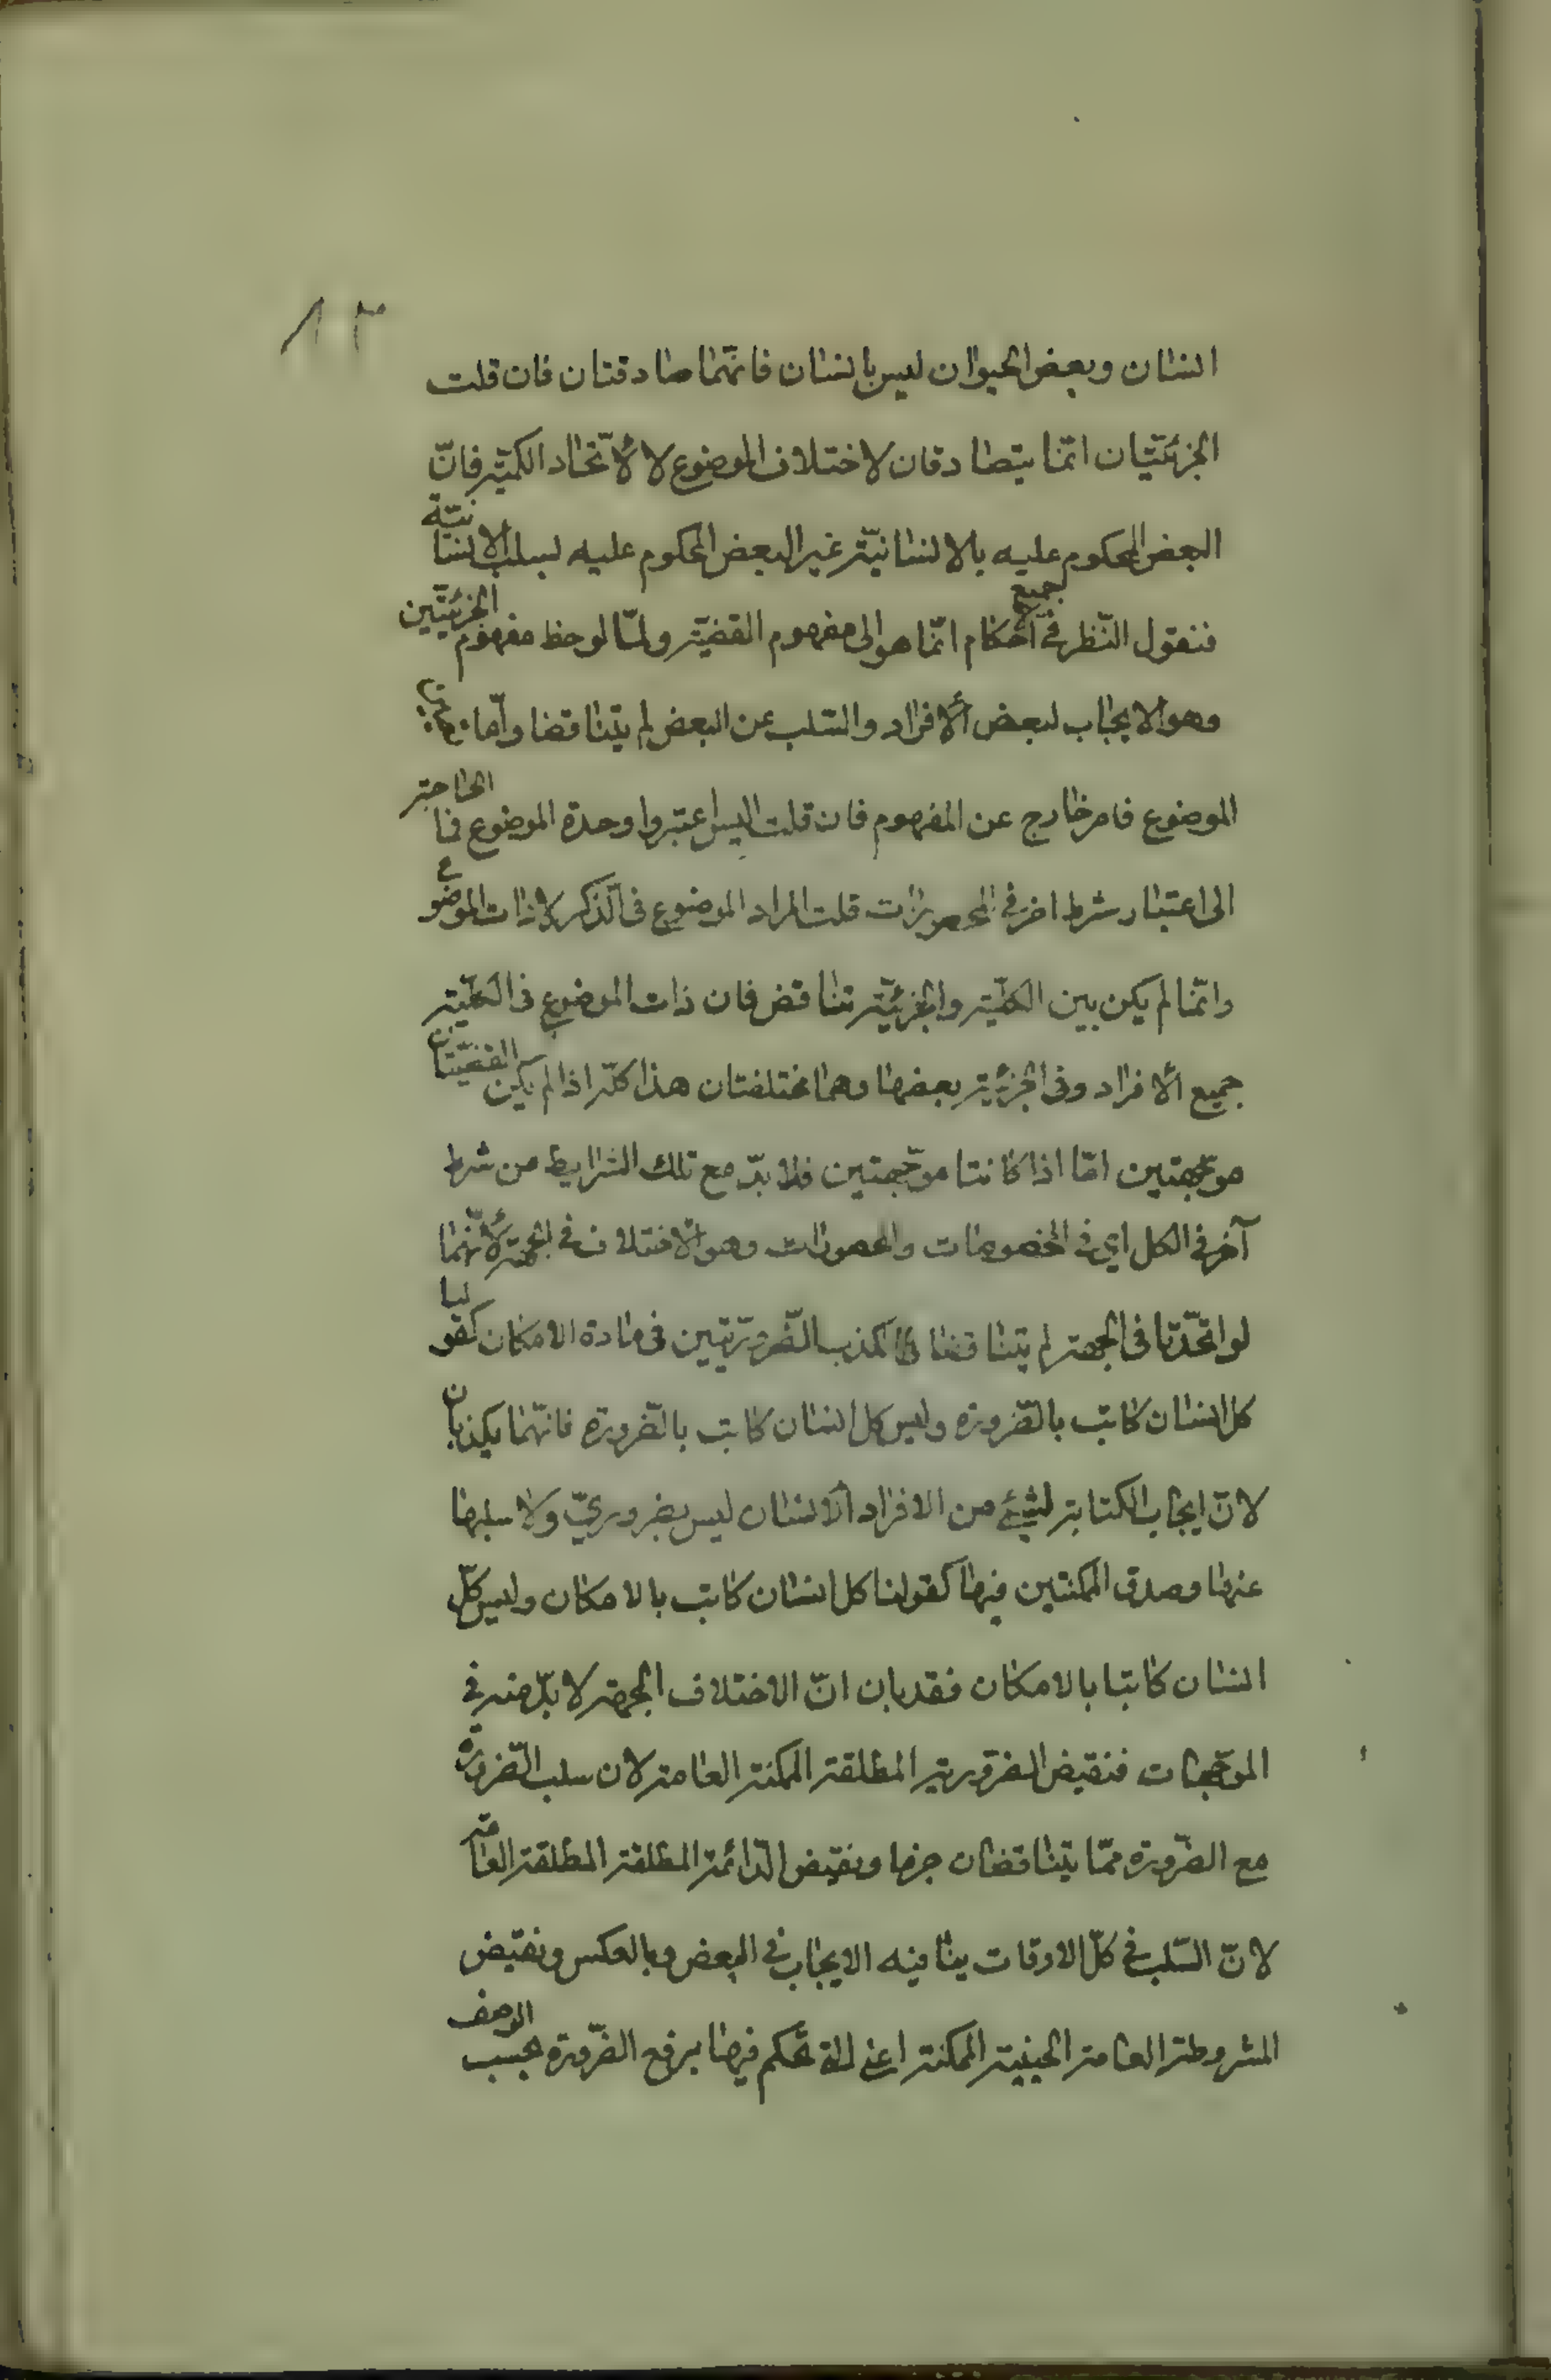 ٨٣
انسان وبعض الحيوان ليس بانسان فانهّما صادقتان فان قلت
الجزئتيان انمّا يتصادقان لاختلاف الموضوع لا لأتحّاد الكميّة فانّ
البعض المحكوم عليه بالانسانيّة غير البعض المحكوم عليه لسلب الانسانيّة
فنقول النّظر في جميع الأحكام انمّا هو الى مفهوم القضيّة ولمّا لوحظ مفهوم الجزئيّتين
وهو الايجاب لبعض الأفراد والسّلب عن البعض لم يتناقضا وأمّا
الموضوع فامر خارج عن المفهوم فان قلت اليس اعتبروا وحدة الموضوع فما الحاجة
الى اعتبار شرط اخر في المحصورات قلت المراد الموضوع في الذّكر لا ذات الموضوع
وانمّا لم يكن بين الكليّة والجزئيّة تناقض فان ذات الموضوع في الكليّة
جميع الأفراد وفي الجزئية بعضها وهما مختلفتان هذا كلّه اذا لم يكن القضيّتان
موجّهتين امّا اذا كانتا موجّهتين فلا بدّ مع تلك الشرايط من شرط
آخر في الكل اي في المخصوصات والمحصورات وهو الاختلاف في الجهة لأنهّما
لو اتحّدتا في الجهة لم يتناقضا لكذب الضّروريّتين في مادة الامكان كقولنا
كل انسان كاتب بالضّرورة وليس كل انسان كاتب بالضّرورة فانهّما يكذبان
لانّ ايجاب الكتابة لشئ من الافراد الأنسان ليس بضروريّ ولا سلبها
عنها وصدق الممكنتين فيها كقولنا كل انسان كاتب بالامكان وليس كلّ
انسان كاتبا بالامكان فقد بان انّ الاختلاف الجهة لا بدّ منه في
الموجّهات فنقيض الضرورية المطلقة الممكنة العامة لان سلب الضّرورة
مع الضّرورة ممّا يتناقضان جزما ونقيض الدّائمة المطلقة المطلقة العامّة
لانّ السّلب في كلّ الاوقات ينافيه الايجاب في البعض وبالعكس ونقيض
المشروطة العامة الحينية الممكنة اعني التي تحكم فيها برفع الضّرورة بحسب الوصف